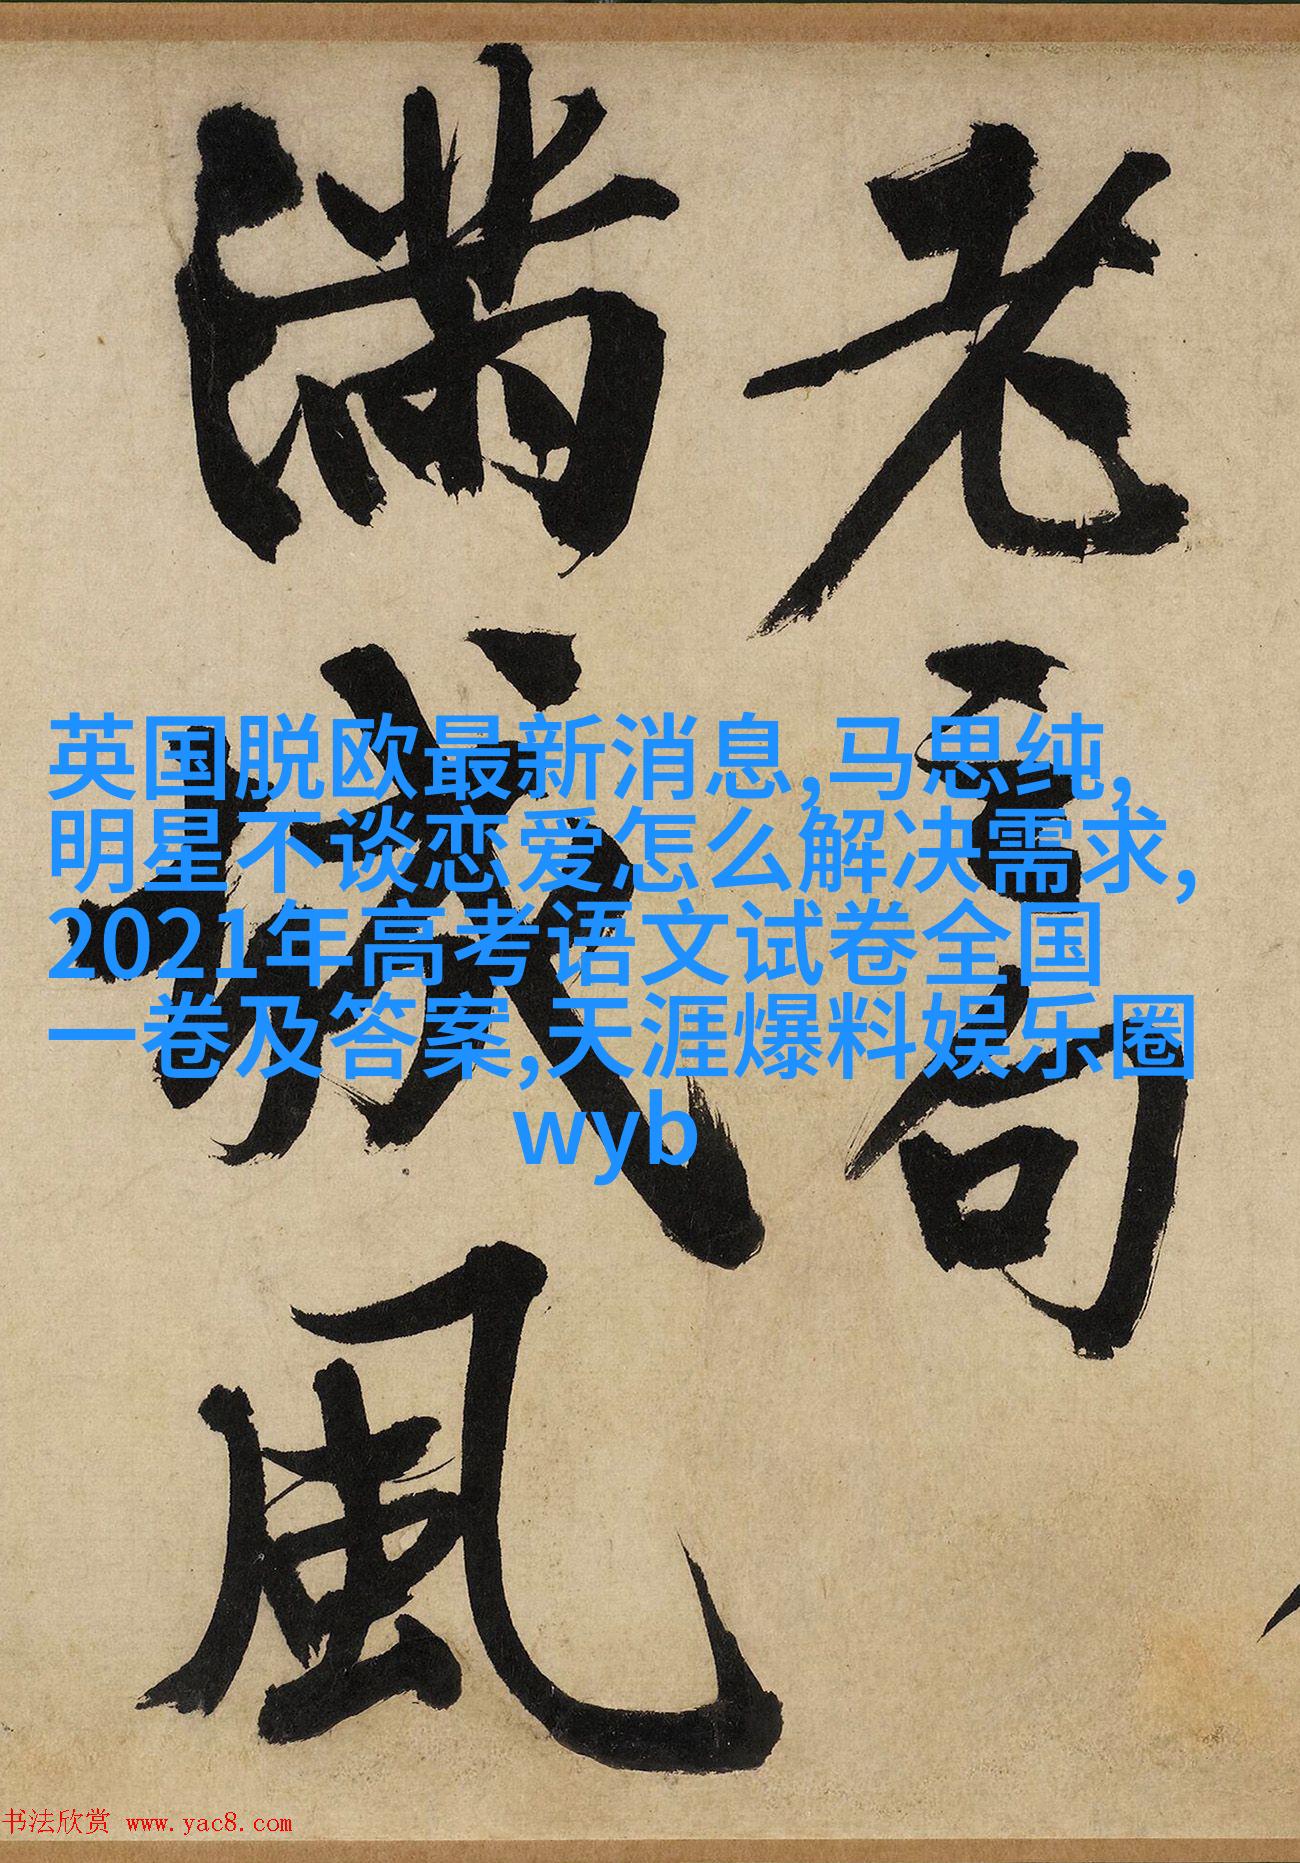 老句
滿城風
英国脱欧最新消息,马思纯,
明星不谈恋爱怎么解决需求,
2021年高考语文试卷全国
一卷及答案,天涯爆料娱乐圈
wyb
书法欣赏 www.yac8.com